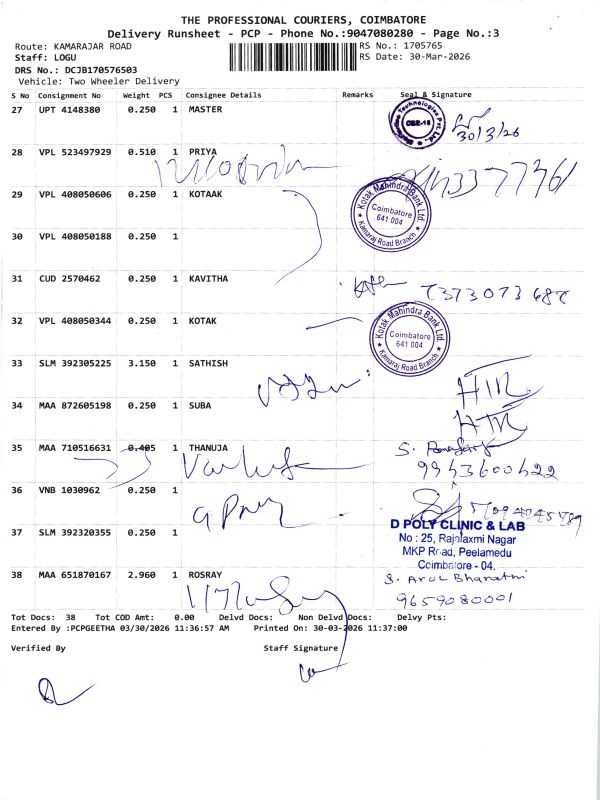 THE PROFESSIONAL COURIERS, COIMBATORE
Delivery Runsheet - PCP - Phone No.:9047080280 - Page No.:3
Route: KAMARAJAR ROAD
RS No.: 1705765
Staff: LOGU
RS Date: 30-Mar-2026
DRS No.: DCJB170576503
Vehicle: Two Wheeler Delivery
S No Consignment No Weight PCS Consignee Details Remarks Seal & Signature
27 UPT 4148380 0.250 1 MASTER
CBE-15
30/3/26
28 VPL 523497929 0.510 1 PRIYA
29 VPL 408050606 0.250 1 KOTAAK
Kotak Mahindra Bank Ltd.
Coimbatore
641 004
Kamaraj Road Branch
30 VPL 408050188 0.250 1
31 CUD 2570462 0.250 1 KAVITHA
32 VPL 408050344 0.250 1 KOTAK
Kotak Mahindra Bank Ltd.
Coimbatore
641 004
Kamaraj Road Branch
33 SLM 392305225 3.150 1 SATHISH
34 MAA 872605198 0.250 1 SUBA
35 MAA 710516631 0.405 1 THANUJA
36 VNB 1030962 0.250 1
37 SLM 392320355 0.250 1
D POLY CLINIC & LAB
No : 25, Rajalaxmi Nagar
MKP Road, Peelamedu
Coimbatore - 04.
38 MAA 651870167 2.960 1 ROSRAY
S. Arul Bharathi
9659080001
Tot Docs: 38 Tot COD Amt: 0.00 Delvd Docs: Non Delvd Docs: Delvy Pts:
Entered By :PCPGEETHA 03/30/2026 11:36:57 AM Printed On: 30-03-2026 11:37:00
Verified By Staff Signature